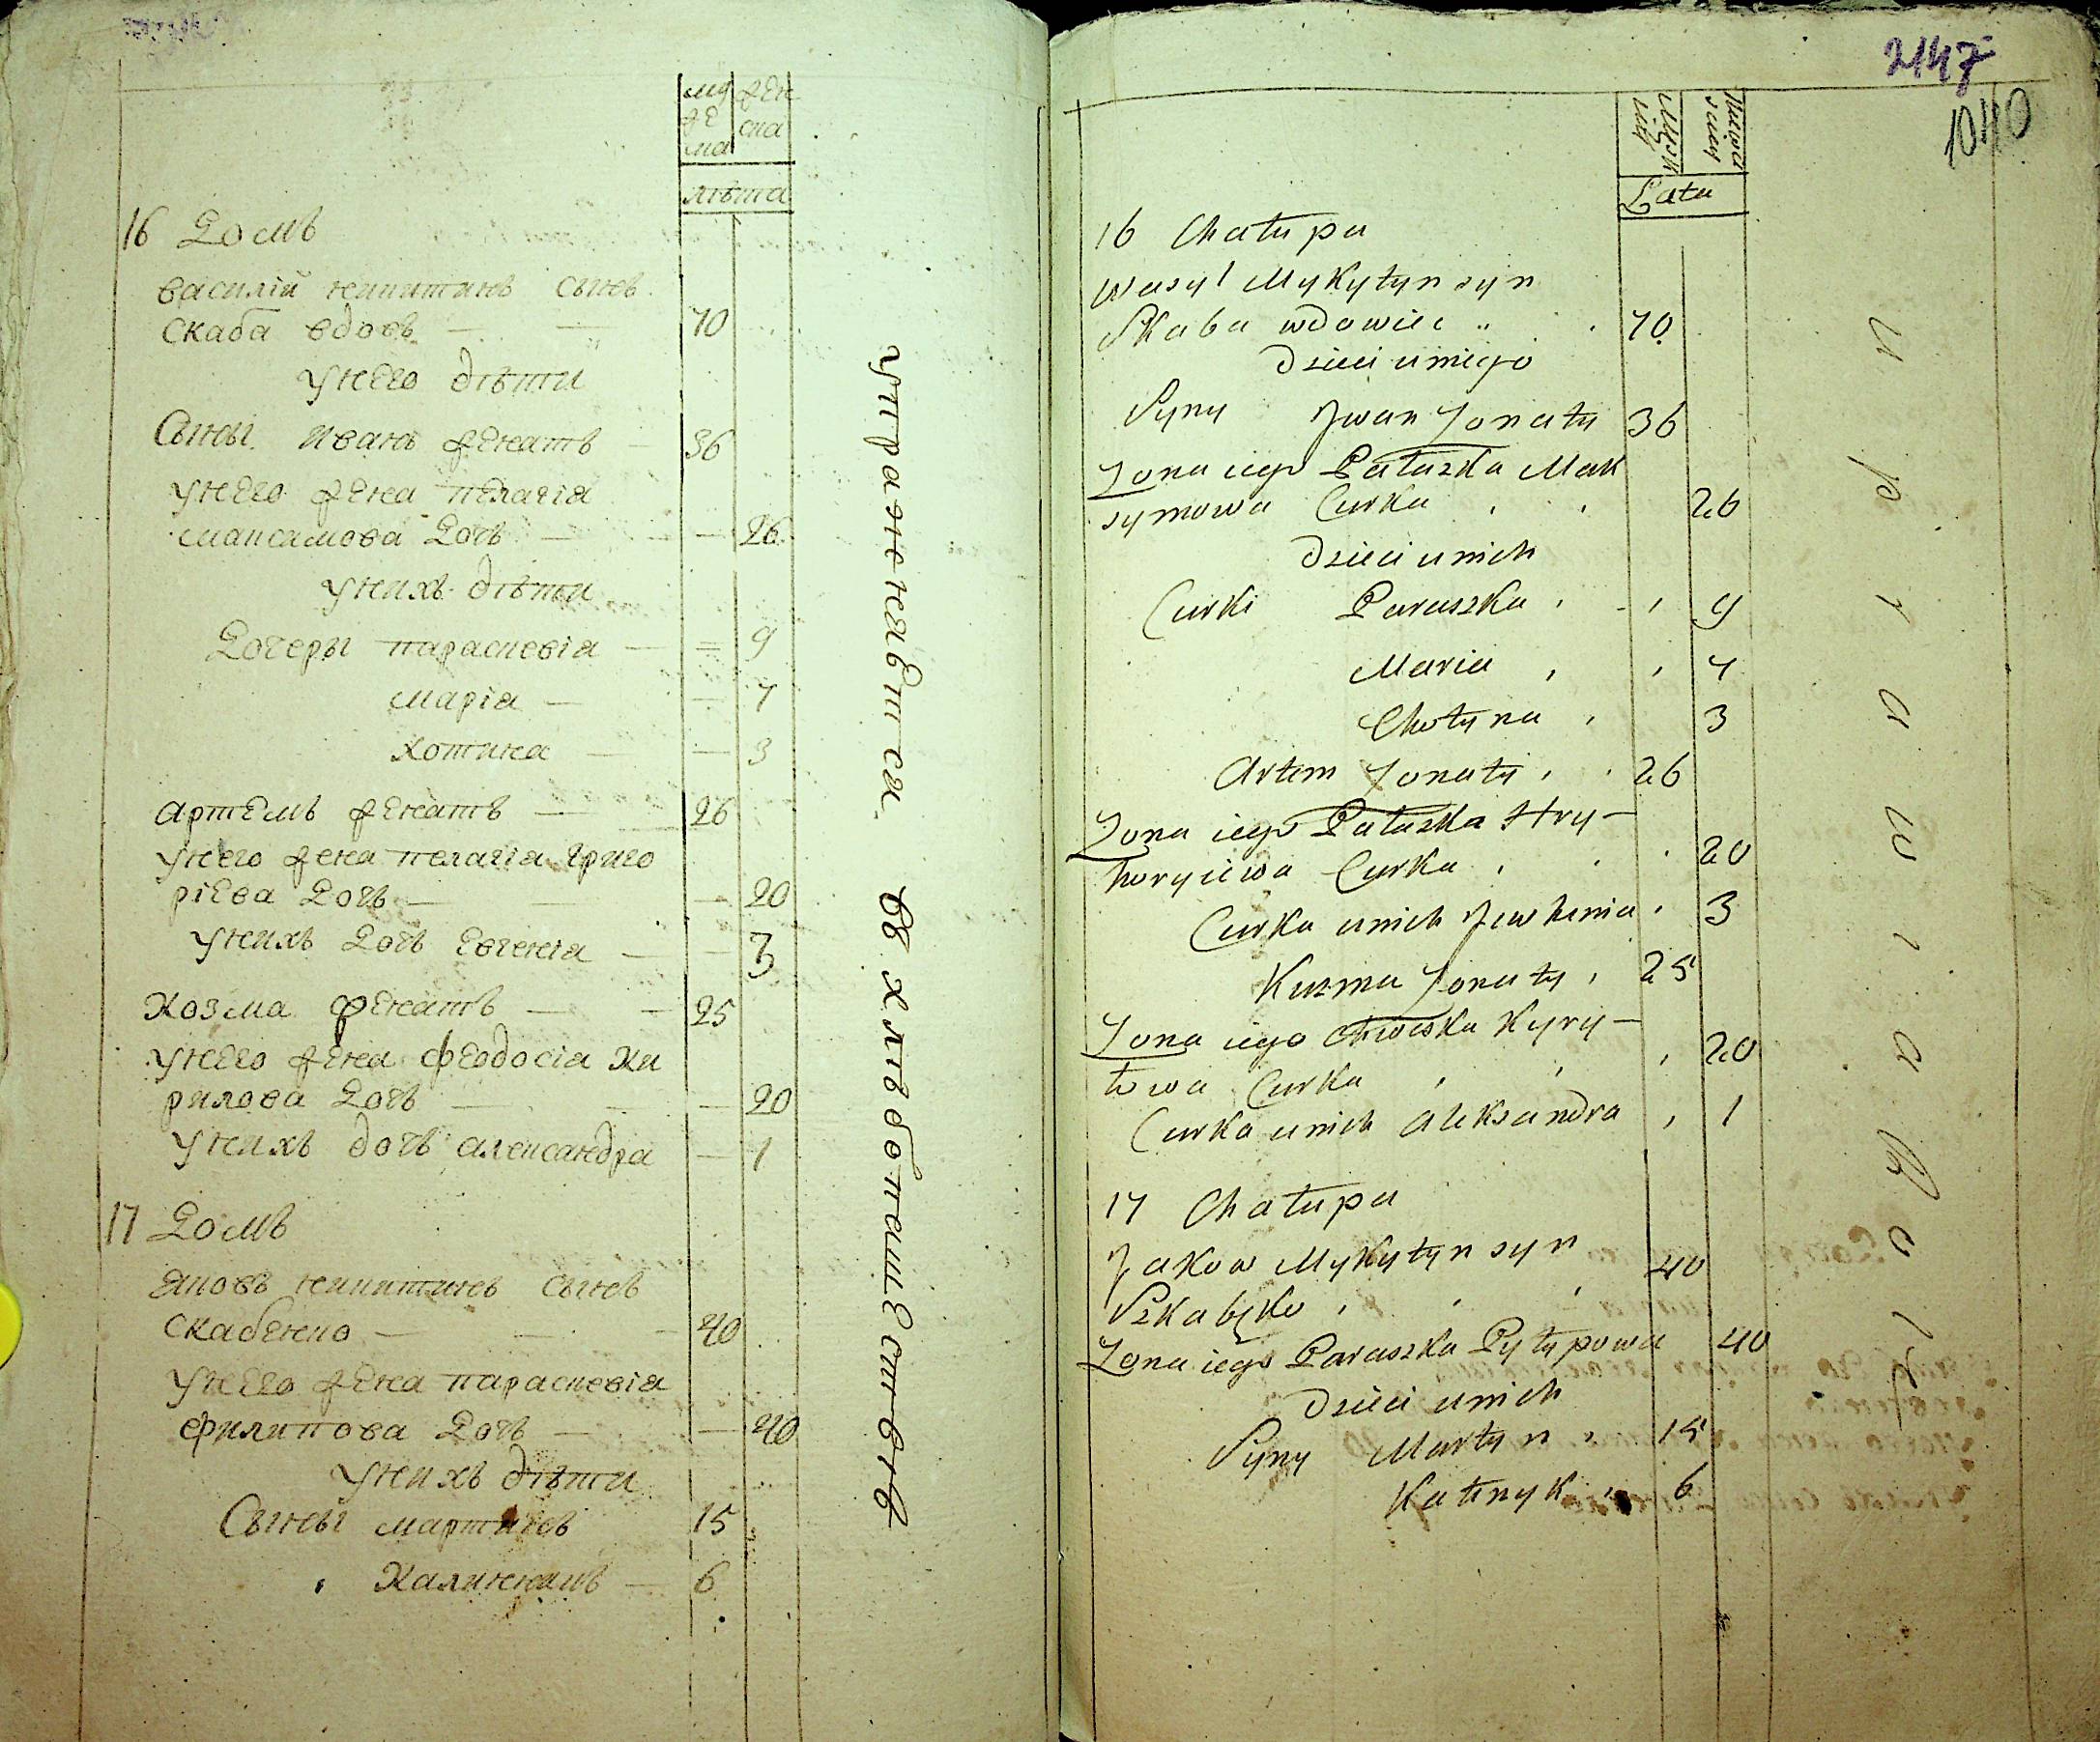 муже ска
жен ска
лѣта
16 Домъ
василій никитинъ сынъ
скаба вдовъ — — 70
унего дѣти
Сыны иванъ женатъ — 36
унего жена пелагія
максимова Дочь — — 26
унихъ дѣти
Дочеры параскевія — = 9
марія — — 7
хотина — — 3
артемъ женатъ — 26
унего жена пелагія григо
ріева Дочь — — 20
унихъ Дочь Евгенія — — 3
Козма женатъ — — 25
унего жена феодосія ки
рилова Дочь — — 20
унихъ дочь александра — 1
17 Домъ
яковъ никитинъ сынъ
скабенко — — 40
унего жена параскевія
филипова Дочь — — 40
унихъ дѣти
Сыны мартинъ 15
калинникъ — 6
упражнявтся въ хлѣбопашествѣ
2147
1040
Męzk
Niewia
Lata
16 Chałupa
Wasyl Mykytyn syn
Skaba wdowiec 70
Dzieci uniego
Syny Jwan Żonaty 36
Żona iego Pałaszka Mak
symowa Curka 26
Dzieci unich
Curki Paraszka 9
Maria 7
Chotyna 3
Artem Żonaty 26
Żona iego Pałaszka Hry-
horyiewa Curka 20
Curka unich Jewhenia 3
Kuzma Żonaty 25
Żona iego Chweska Kyry-
łowa Curka 20
Curka unich Aleksandra 1
17 Chałupa
Jakow Mykytyn syn 40
Żona iego Paraszka Pyłypowa 40
Dzieci unich
Syny Martyn 15
Kałynyk 6
uprawia Rolę